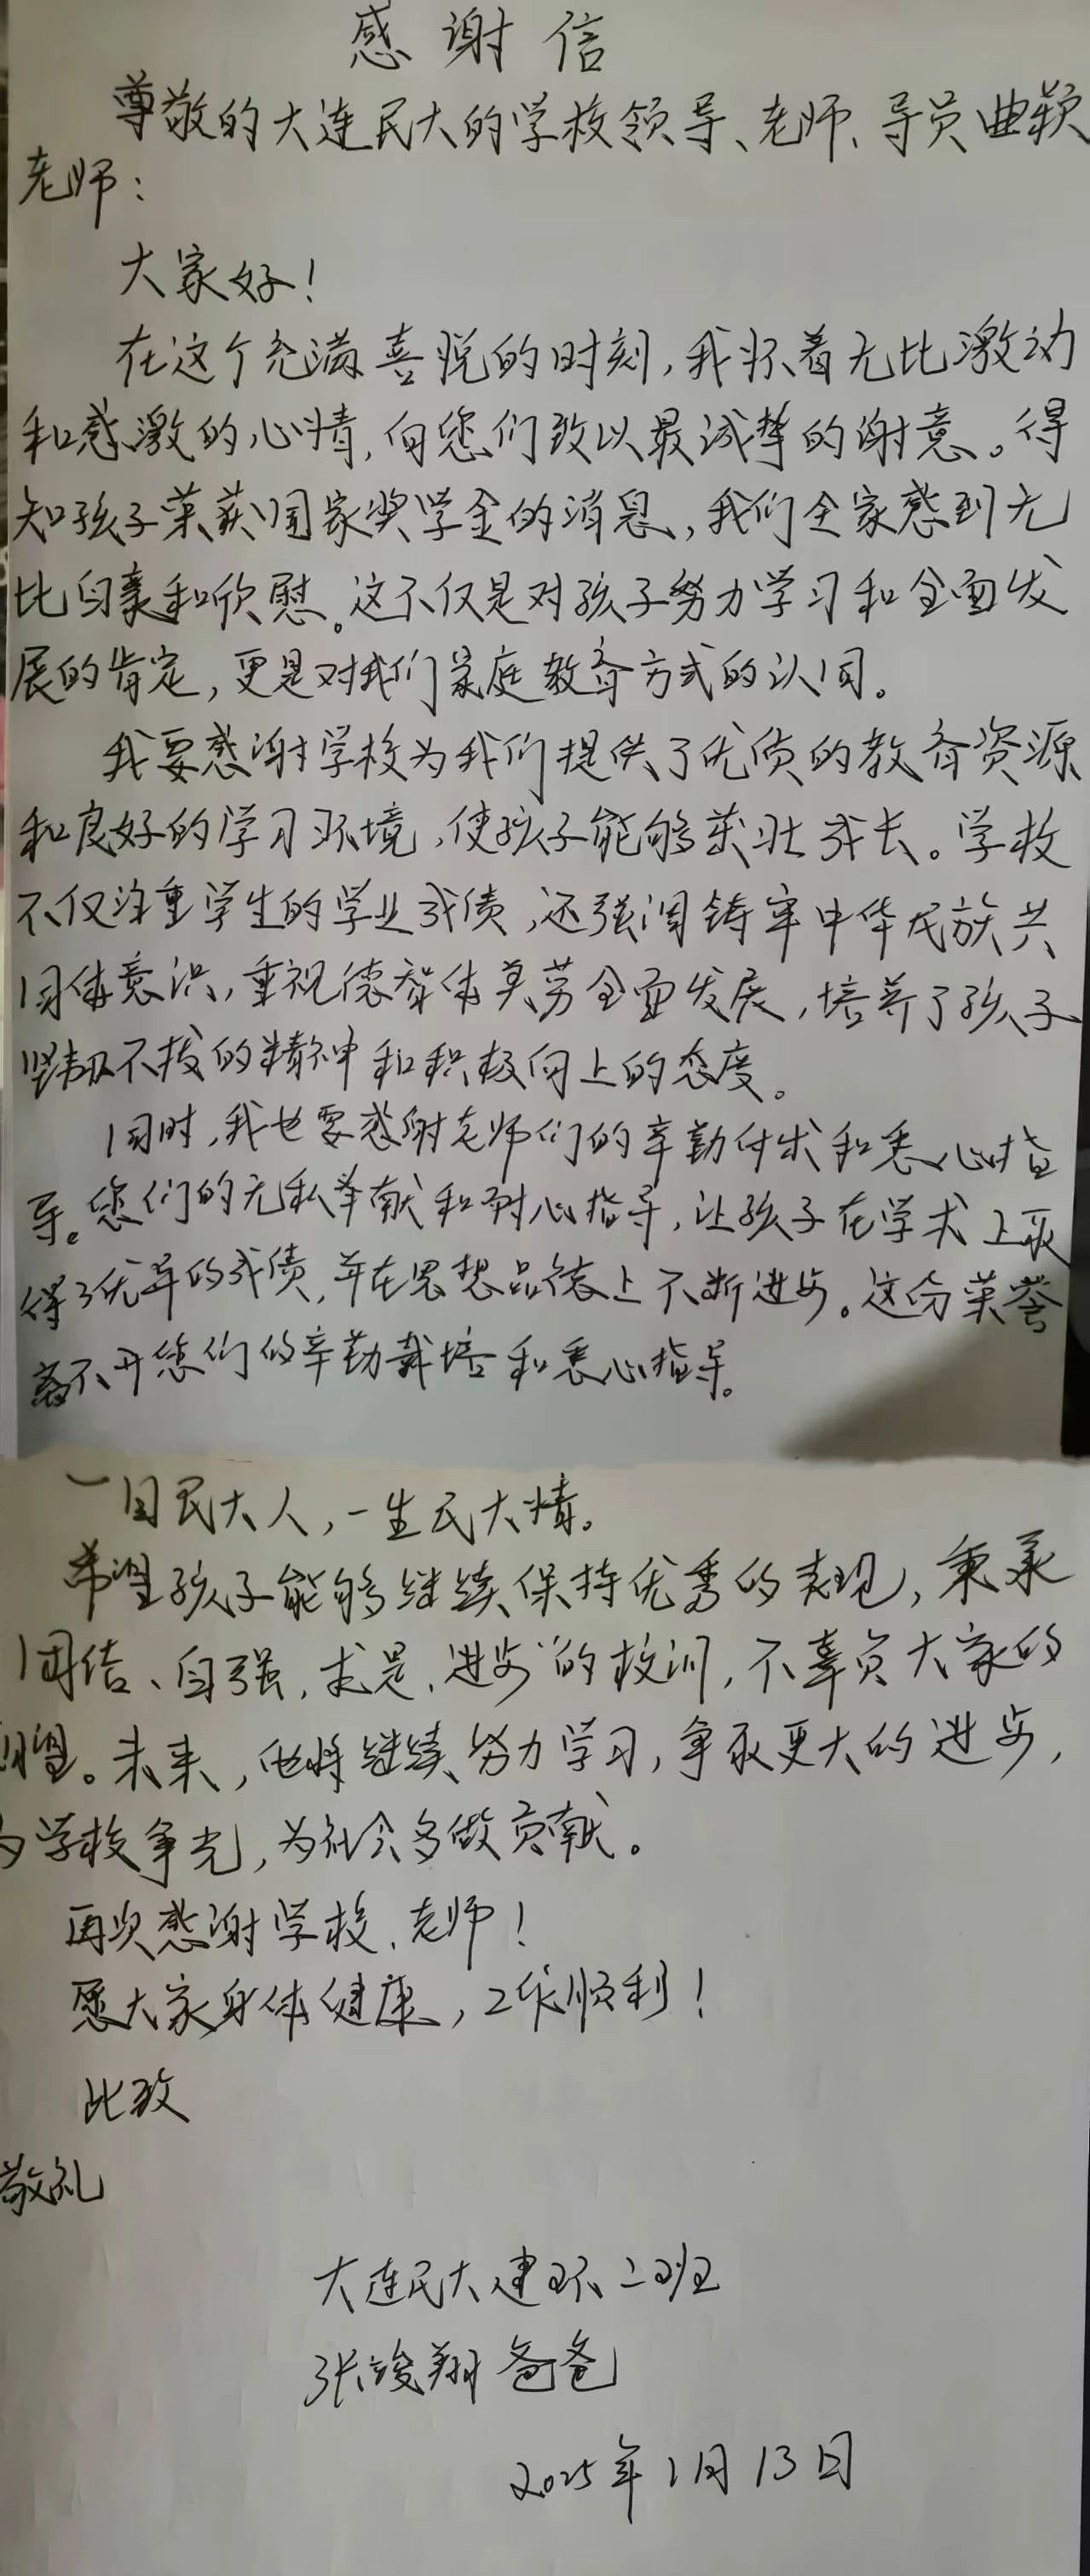 感谢信
尊敬的大连民大的学校领导、老师、导员曲颖
老师：
大家好！
在这个充满喜悦的时刻，我怀着无比激动
和感激的心情，向您们致以最诚挚的谢意。得
知孩子荣获国家奖学金的消息，我们全家感到无
比自豪和欣慰。这不仅是对孩子努力学习和全面发
展的肯定，更是对我们家庭教育方式的认同。
我要感谢学校为我们提供了优质的教育资源
和良好的学习环境，使孩子能够茁壮成长。学校
不仅注重学生的学业成绩，还强调铸牢中华民族共
同体意识，重视德智体美劳全面发展，培养了孩子
坚韧不拔的精神和积极向上的态度。
同时，我也要感谢老师们的辛勤付出和悉心指
导。您们的无私奉献和耐心指导，让孩子在学术上取
得了优异的成绩，并在思想品德上不断进步。这份荣誉
离不开您们的辛勤栽培和悉心指导。
一日民大人，一生民大情。
希望孩子能够继续保持优秀的表现，秉承
团结、自强、求是、进步"的校训，不辜负大家的
期望。未来，他将继续努力学习，争取更大的进步，
为学校争光，为社会多做贡献。
再次感谢学校、老师！
愿大家身体健康，工作顺利！
此致
敬礼
大连民大建环二班
张竣翔爸爸
2025年1月13日